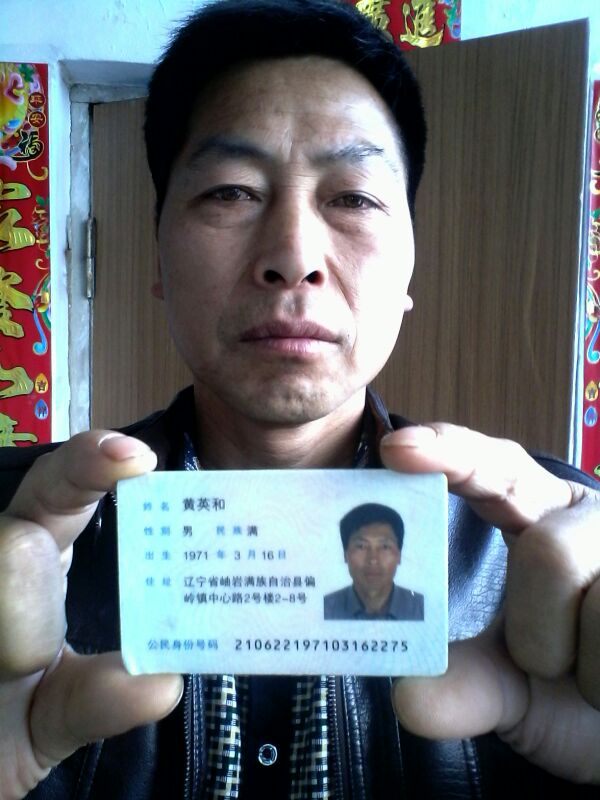 進
平安
福
姓名 黄英和
性别 男 民族 满
出生 1971 年 3 月 16 日
住址 辽宁省岫岩满族自治县偏
岭镇中心路2号楼2-8号
公民身份号码 210622197103162275